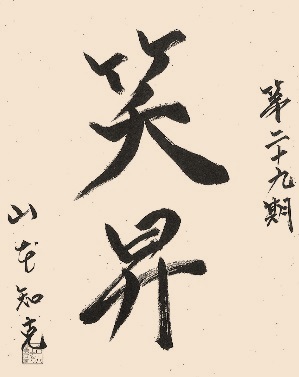 第二十九期
笑昇
山本知克